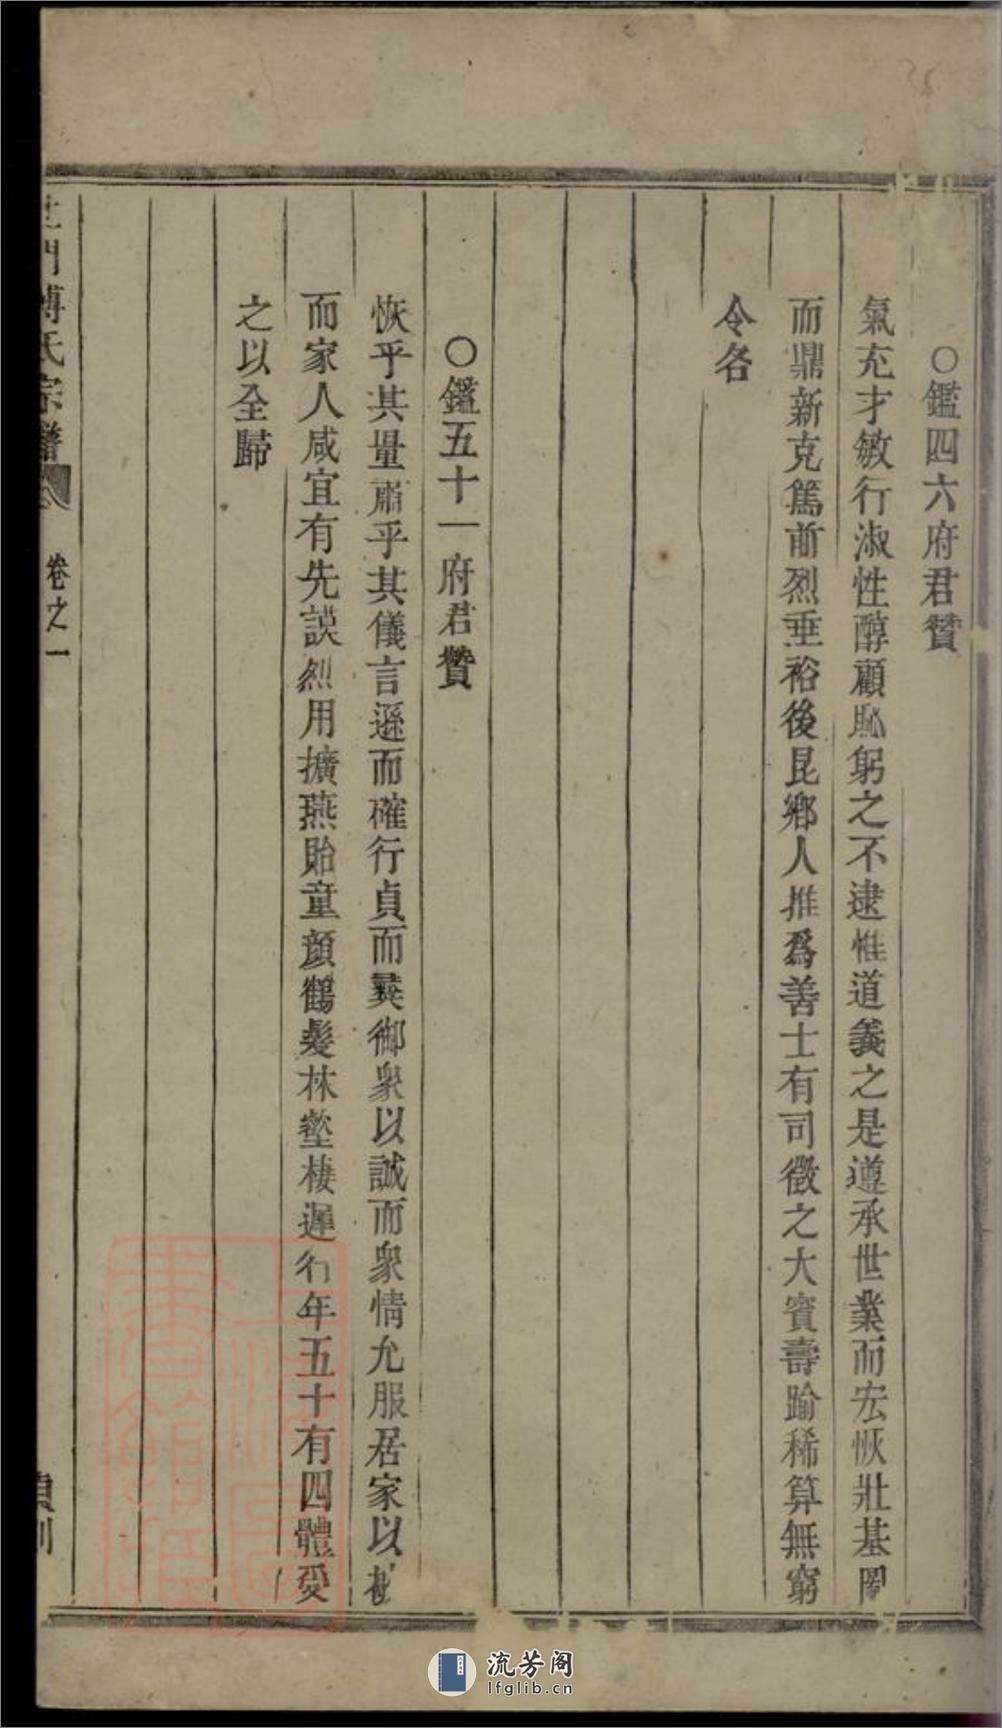 ○鑑四六府君贊
氣充才敏行淑性醇顧恥躬之不逮惟道義之是遵承世業而宏恢壯基圖
而鼎新克篤前烈垂裕後昆鄉人推爲善士有司徵之大賓壽踰稀算無窮
令名
○鑑五十一府君贊
恢乎其量肅乎其儀言遜而確行貞而彝御衆以誠而衆情允服居家以
而家人咸宜有先謨烈用擴燕貽童顔鶴髮林壑棲遲行年五十有四體受
之以全歸
門傅氏宗譜 卷之一
流芳阁
lfglib.cn